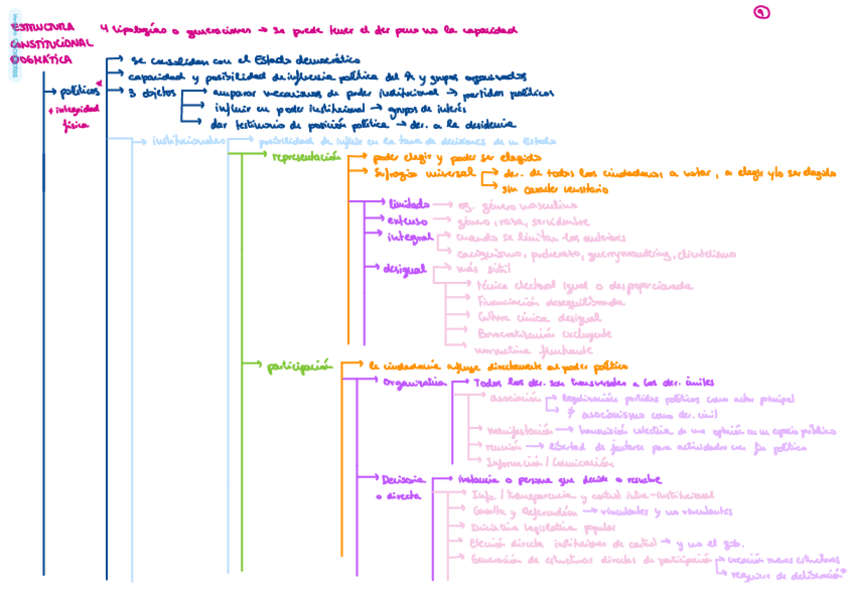 9
ESTRUCTURA 4 tipologías o generaciones → se puede tener el der pero no la capacidad
CONSTITUCIONAL
DOGMÁTICA
→ se consolidan con el Estado democrático
→ políticos*
→ capacidad y posibilidad de influencia política del y grupos organizados
→ 3 objetos → amparar mecanismos de poder institucional → partidos políticos
+ integridad
física
→ influir en poder institucional → grupos de interés
→ dar testimonio de posición política → der. a la desidencia
→ institucionales → posibilidad de influir en la toma de decisiones de un Estado
→ representación → poder elegir y poder ser elegido
→ Sufragio universal → der. de todos los ciudadanos a votar, a elegir y/o ser elegido
→ sin caracter censitario
→ limitado → eg. género masculino
→ extenso → género, raza, servidumbre
→ integral → cuando se limitan los anteriores
→ caciquismo, pucherazo, guerrymandering, clientelismo
→ desigual → más sútil
→ técnica electoral igual o desproporcionada
→ Financiación desequilibrada
→ Cultura cívica desigual
→ Burocratización excluyente
→ normativa fluctuante
→ participación → la ciudadanía influye directamente al poder político
→ Organizativa → Todos los der. son transversales a los der. civiles
→ asociación → legalización partidos políticos como actor principal
→ ≠ asociacionismo como der. civil
→ manifestación → transmisión colectiva de una opinión en un espacio público
→ reunión → libertad de juntarse para actividades con fin político
→ Información / Comunicación
→ Decisoria → instancia o persona que decide o resuelve
o directa → Info / Transparencia y control inter-institucional
→ Consulta y Referendum → vinculantes y no vinculantes
→ Iniciativa legislativa popular
→ Elección directa instituciones de control → y no el gob.
→ Generación de estructuras directas de participación → creación nuevas estructuras
→ requiere de deliberación*